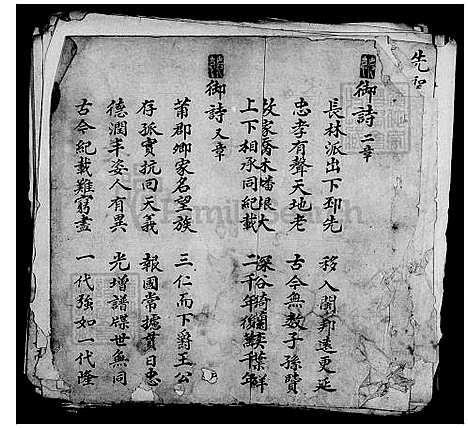 先聖
御詩二章
長林派出下邳先　移入閩邦遠更延
忠孝有聲天地老　古今無數子孫賢
故家喬木蟠根大　深谷猗蘭奕葉鮮
上下相承同紀載　二千年後繫千年
御詩又章
莆郡鄉家名望族　三仁而下爵王公
存孤實抗回天義　報國常攄貫日忠
德潤丰姿人有異　光增譜牒世無同
古今紀載難窮盡　一代強如一代隆
FamilySearch